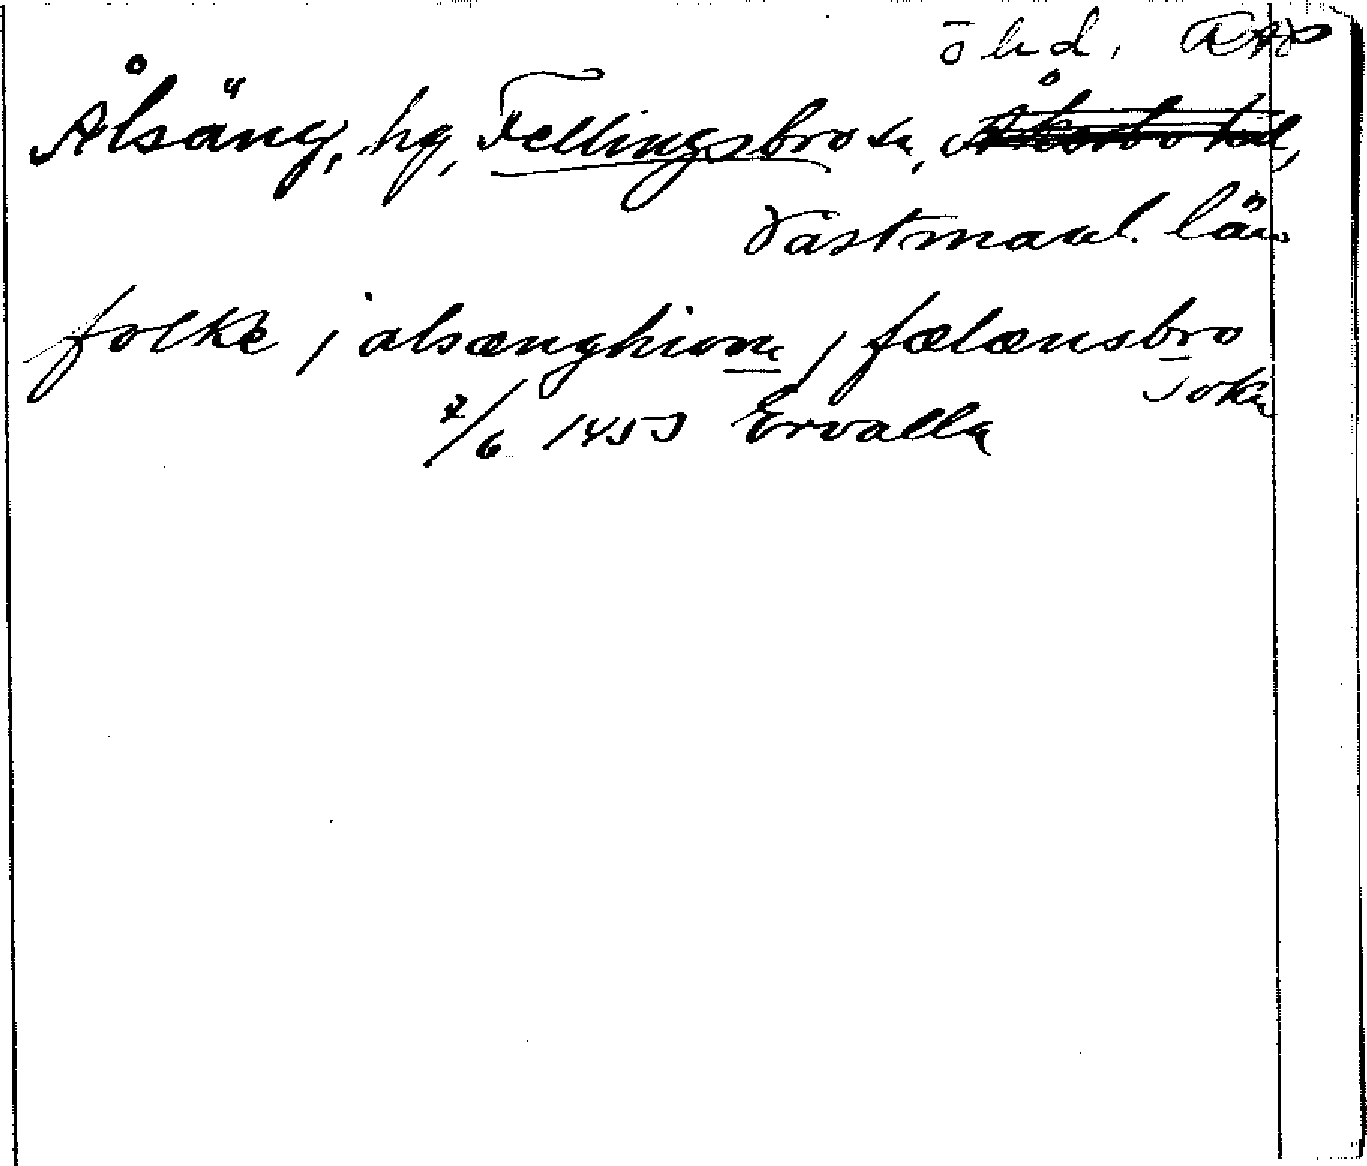 öhd. RAP
Ålsäng, hg, Fellingsbro sn, Åkerbo hd,
Västmanl. län
folke j alsænghiom j fælænsbro
sokn
2/6 1455 Ervalla